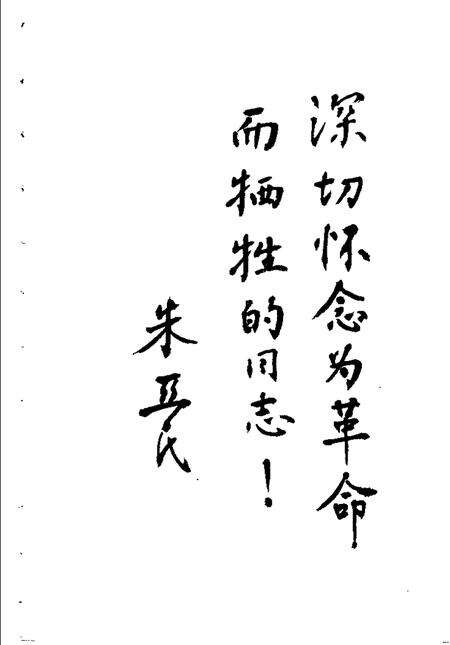 深切怀念为革命
而牺牲的同志！
朱亚民